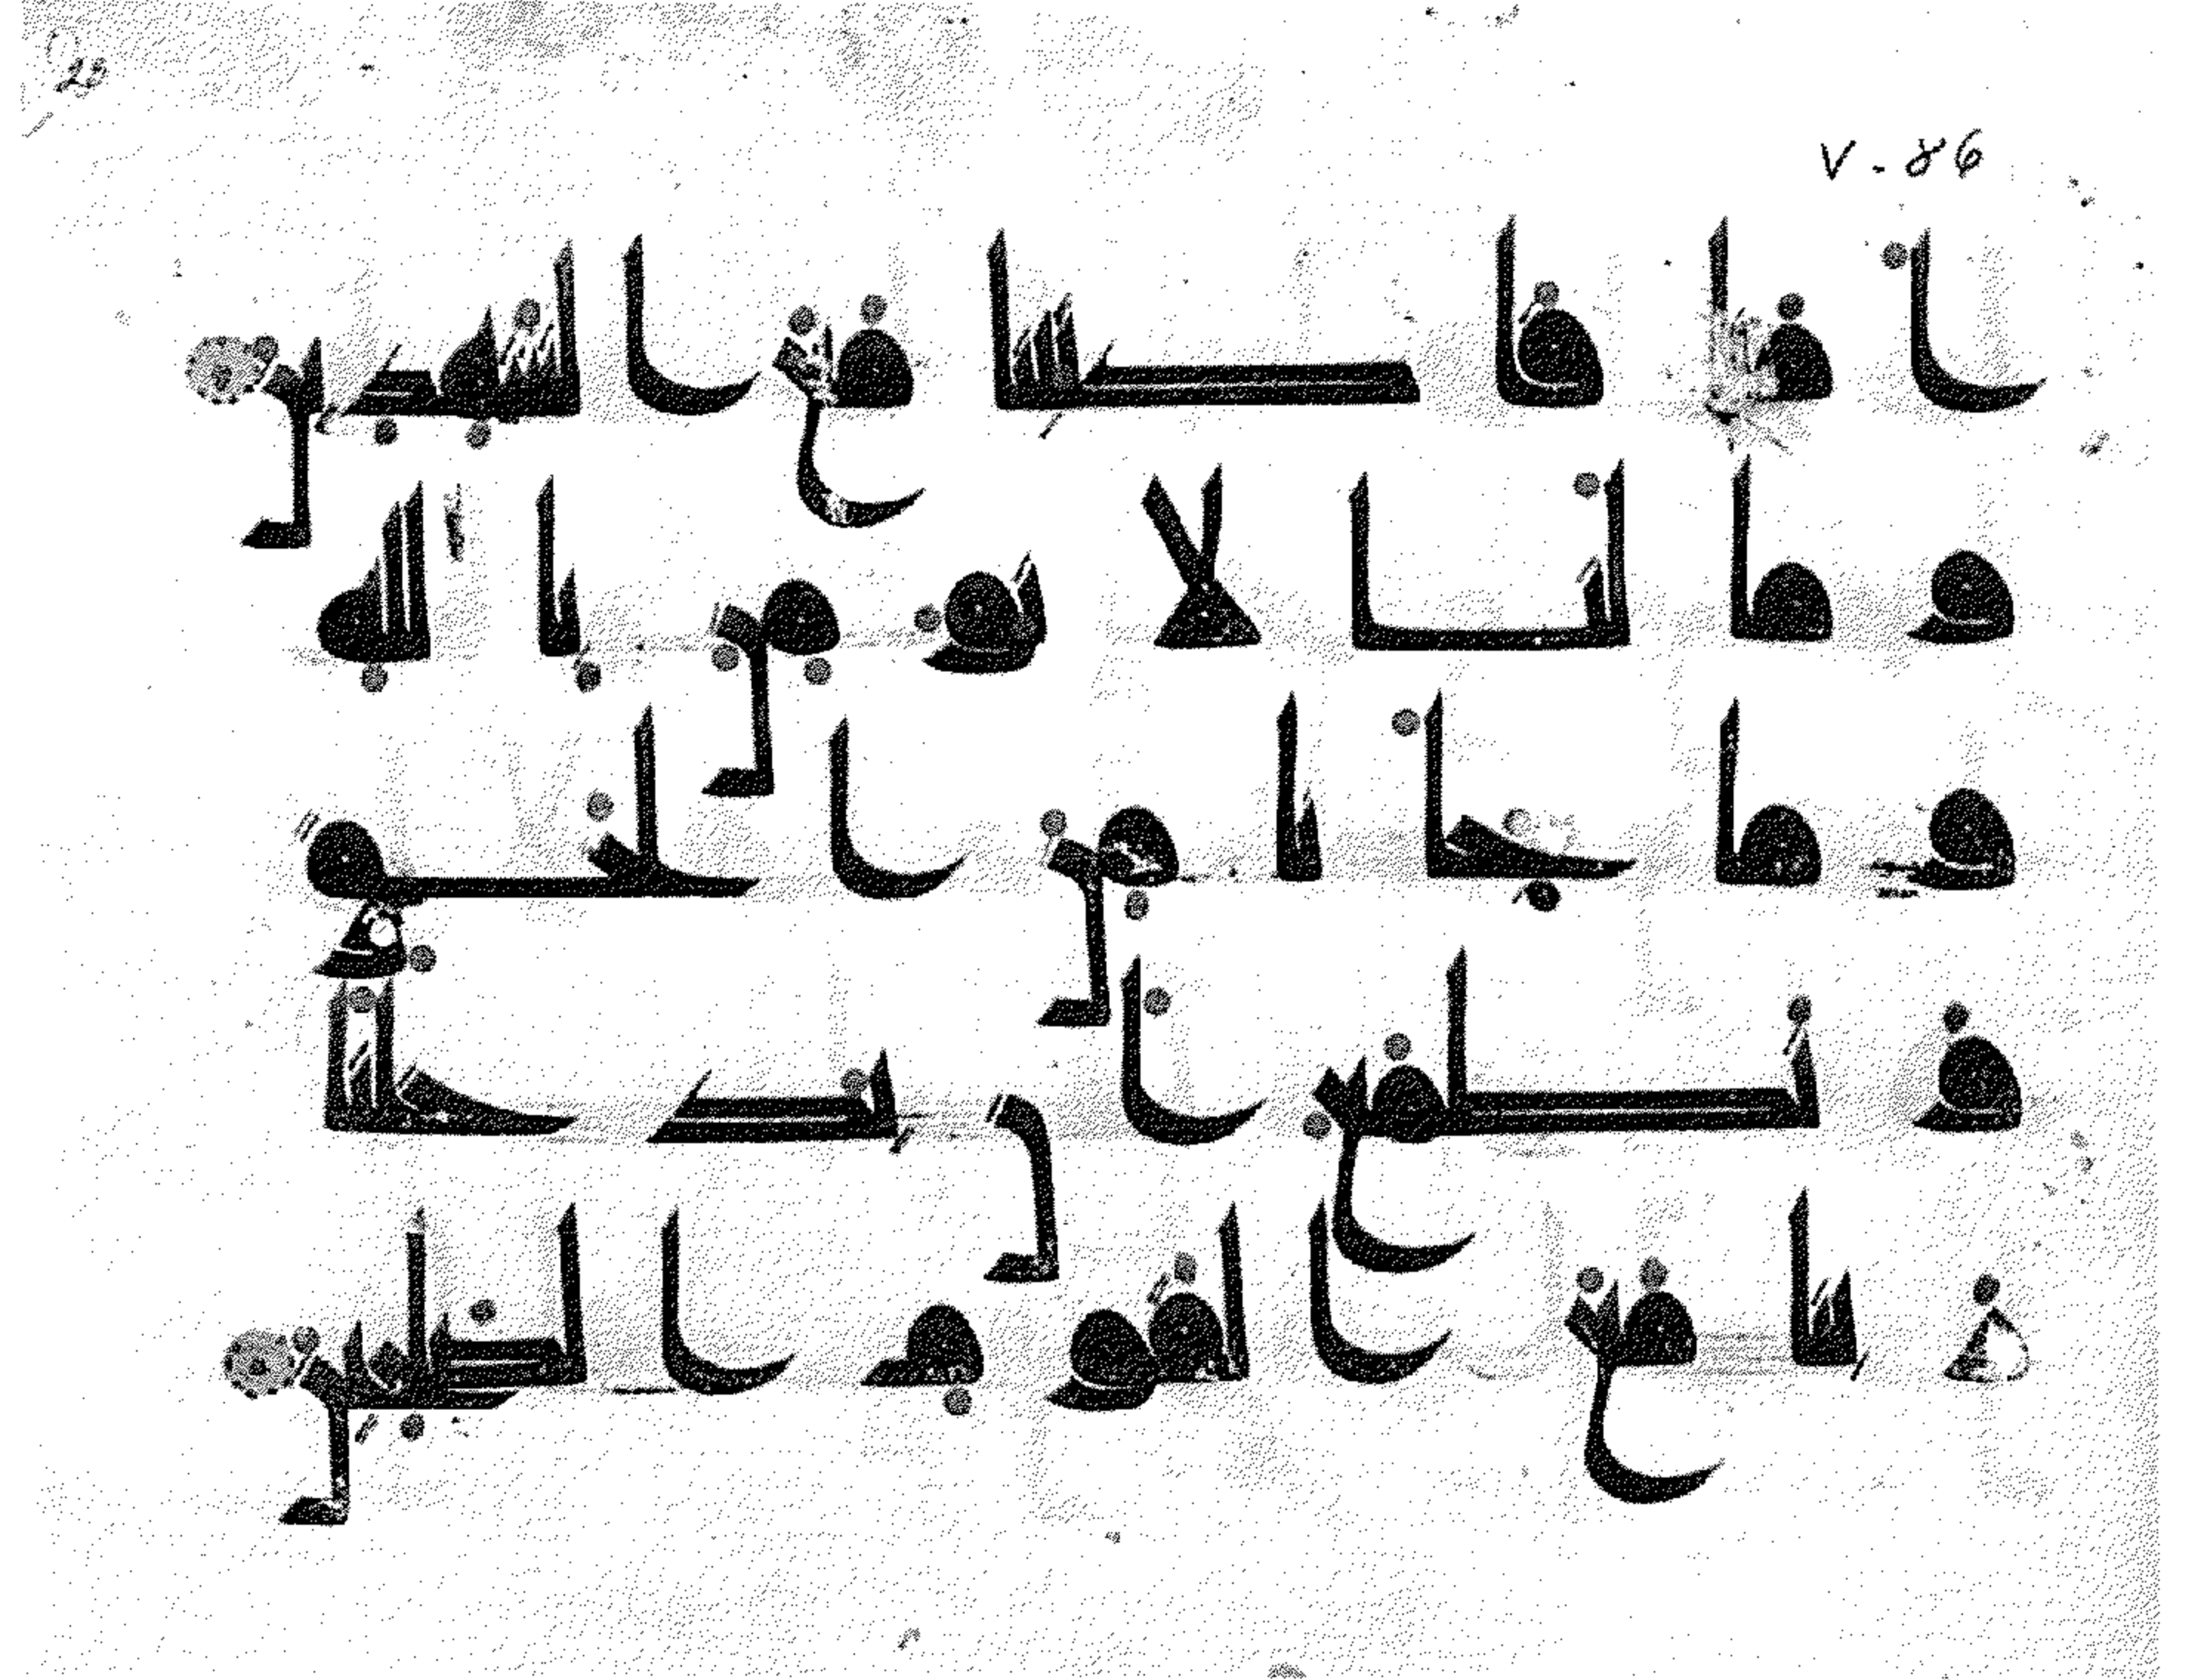 V. 86
امنا فاكتبنا مع الشهدين
وما لنا لا نومن بالله
وما جانا من الحق
ونطمع ان يدخلنا
ربنا مع القوم الصلحين